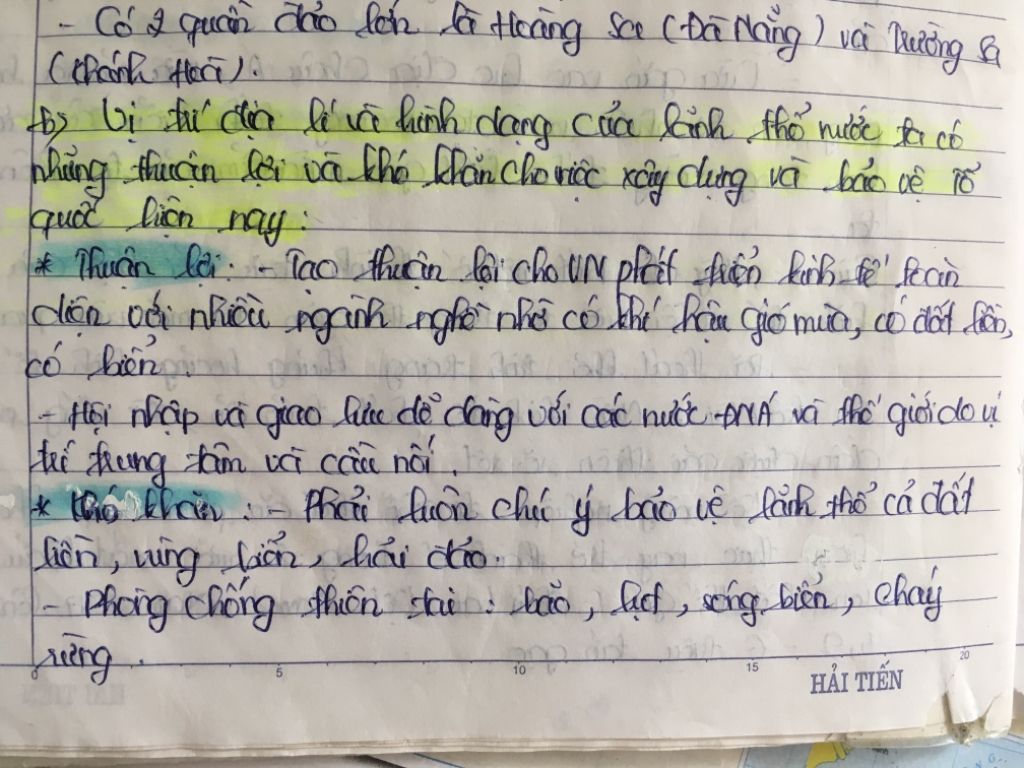 - Có 2 quần đảo lớn là Hoàng Sa (Đà Nẵng) và Trường Sa
(Khánh Hoà).
b) Vị trí địa lí và hình dạng của lãnh thổ nước ta có
những thuận lợi và khó khăn cho việc xây dựng và bảo vệ tổ
quốc hiện nay:
* Thuận lợi: - Tạo thuận lợi cho VN phát triển kinh tế toàn
diện với nhiều ngành nghề nhờ có khí hậu gió mùa, có đất liền,
có biển.
- Hội nhập và giao lưu dễ dàng với các nước ĐNÁ và thế giới do vị
trí trung tâm và cầu nối.
* Khó khăn: - Phải luôn chú ý bảo vệ lãnh thổ cả đất
liền, vùng biển, hải đảo.
- Phòng chống thiên tai: bão, lụt, sóng biển, cháy
rừng.
0 5 10 15 20
HẢI TIẾN